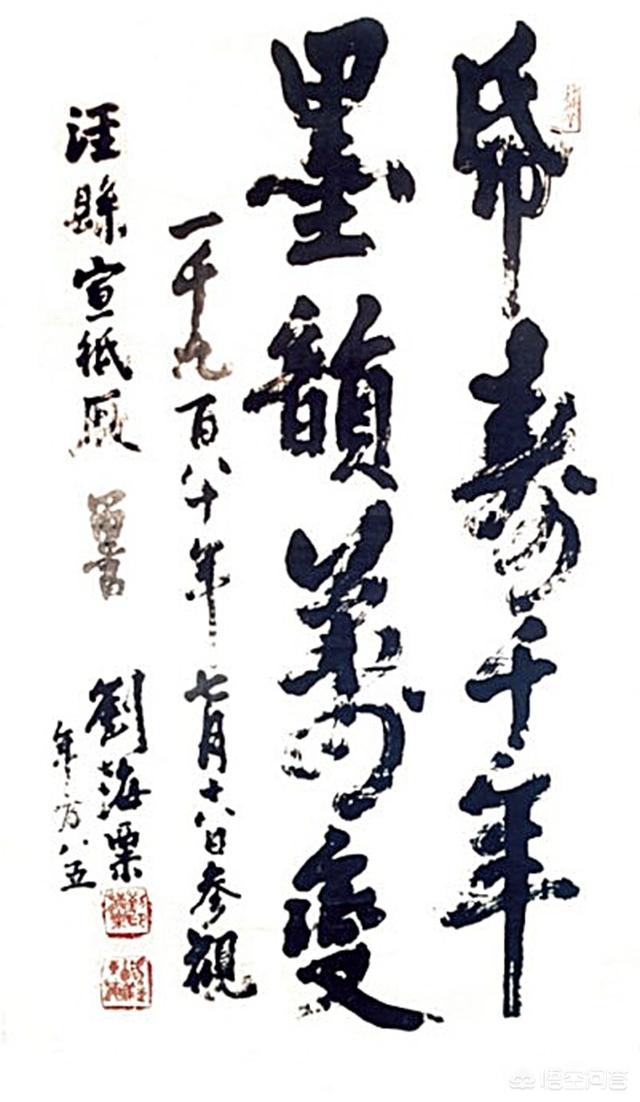 帋寿千年
墨韻萬变
一千九百八十年七月十八日参觀
涇縣宣紙厰
劉海粟
年方八五
悟空问答